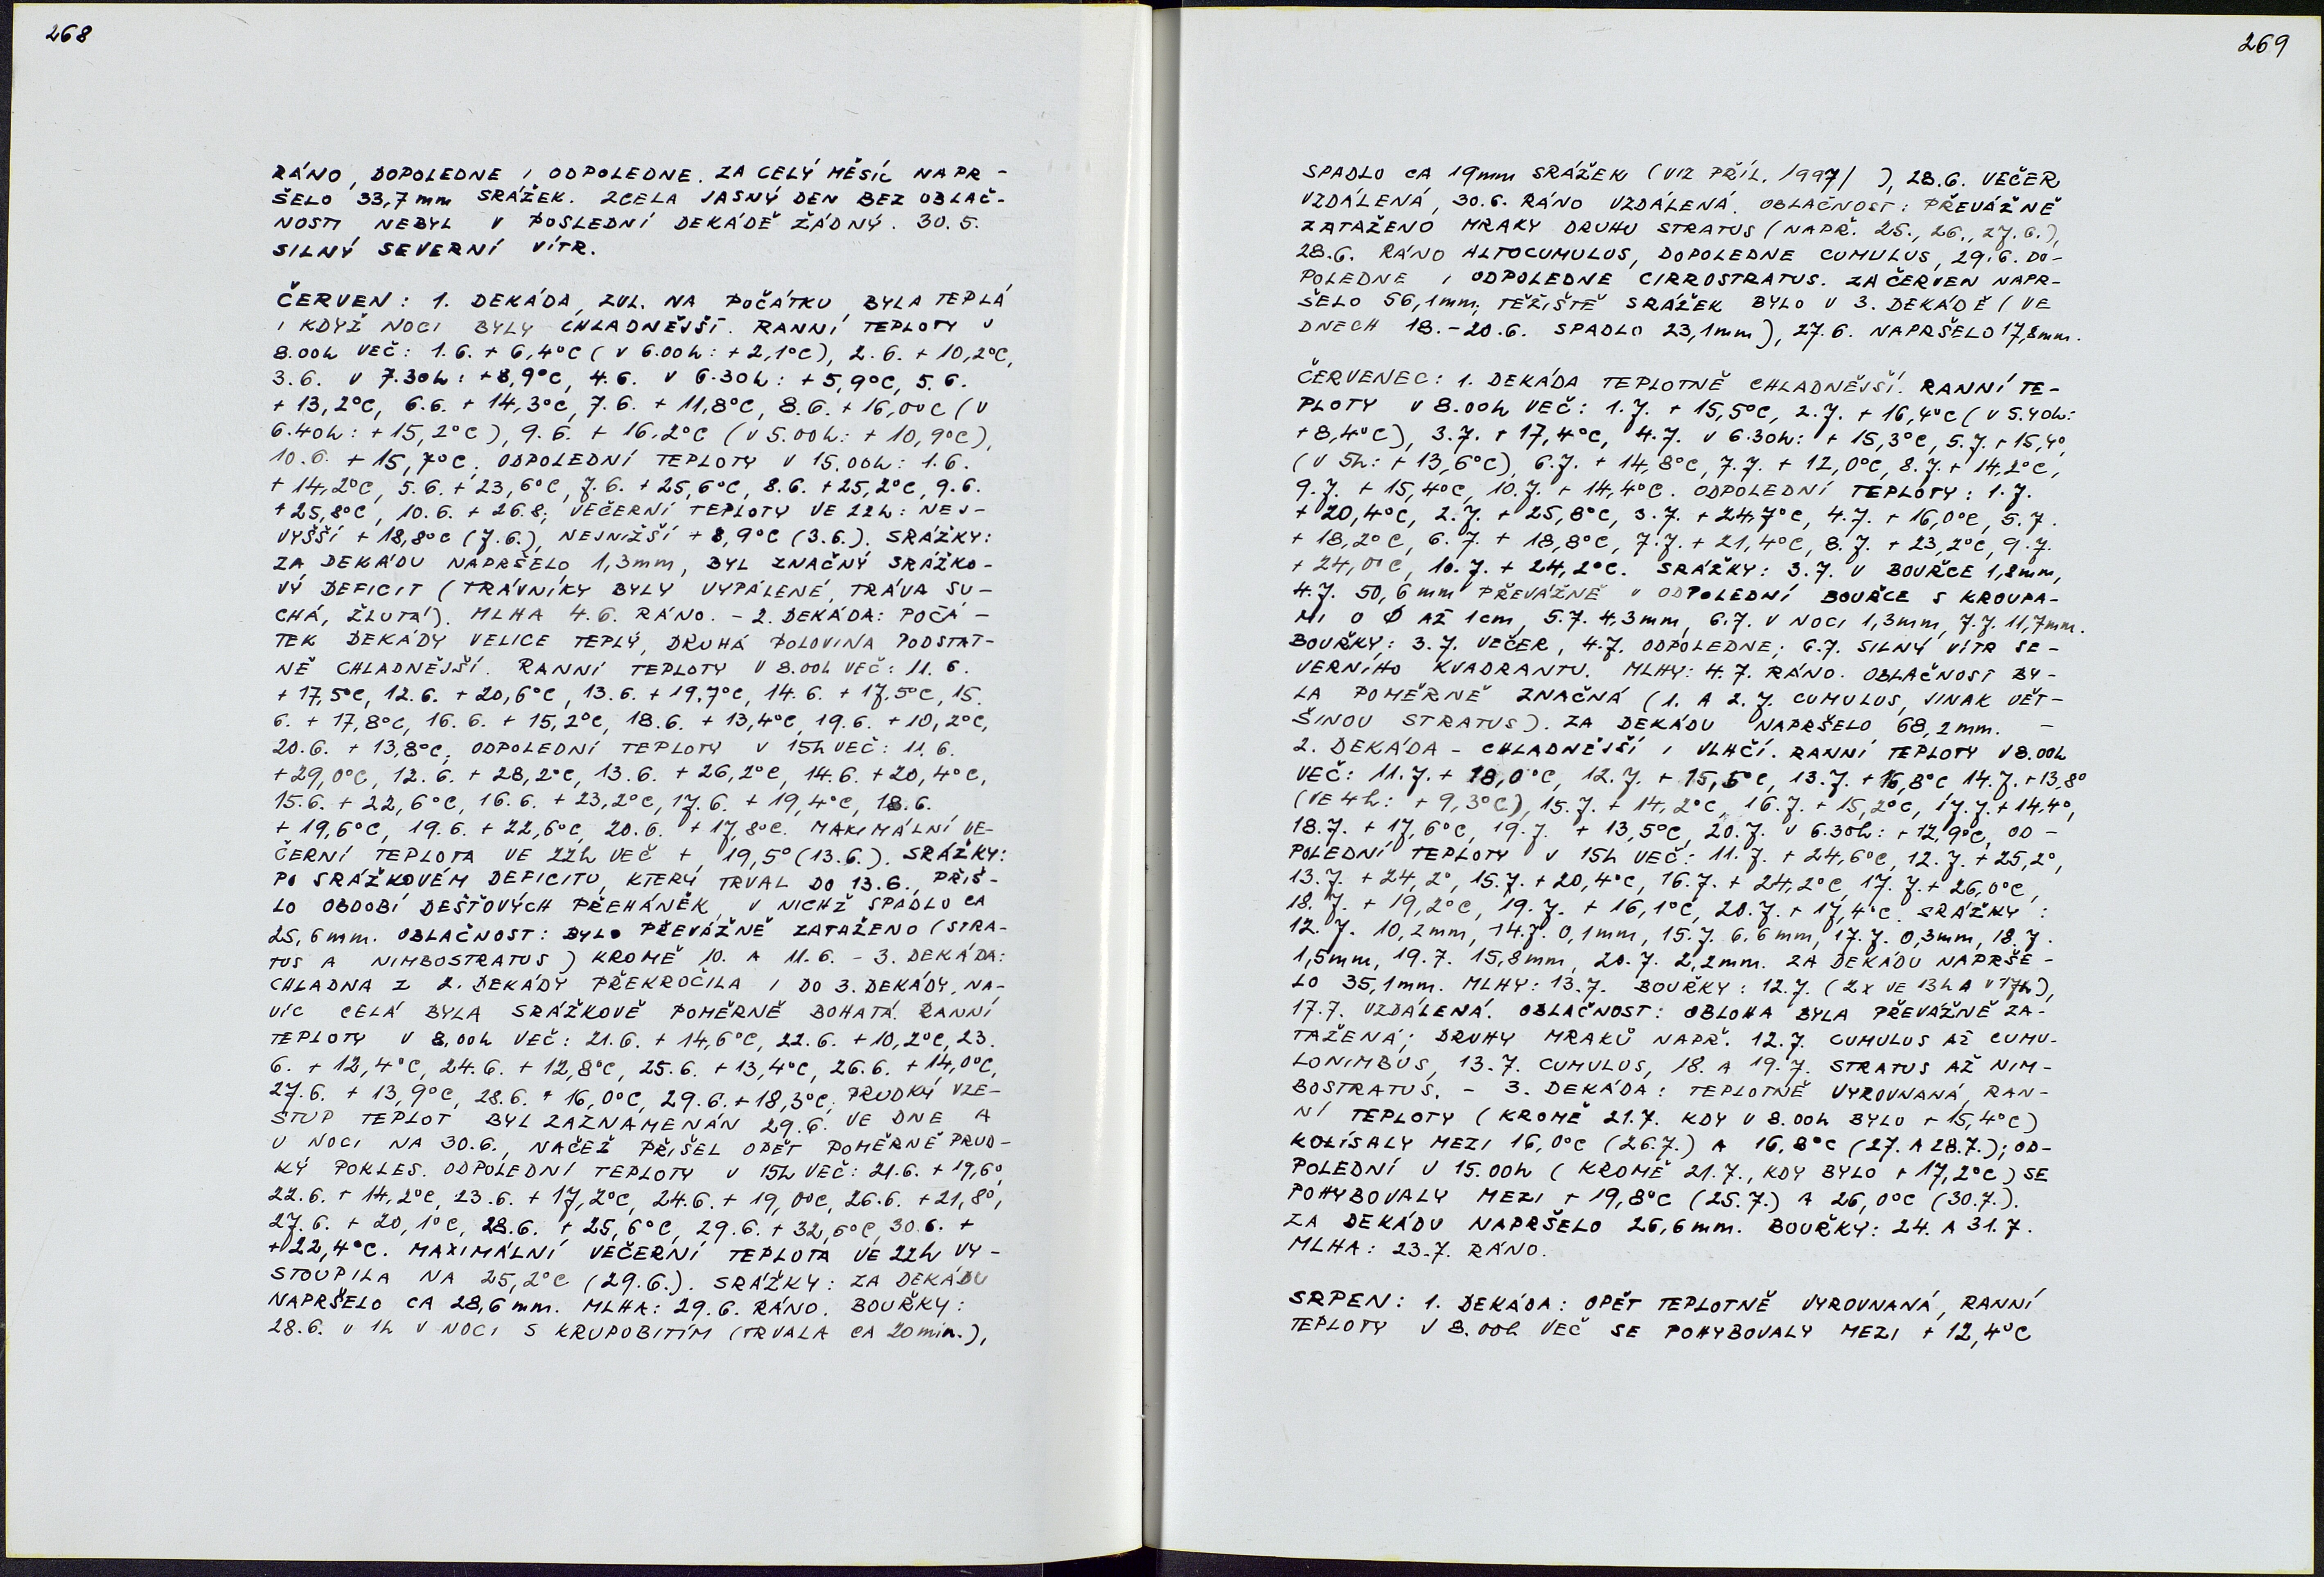 268
RÁNO, DOPOLEDNE I ODPOLEDNE. ZA CELÝ MĚSÍC NAPR-
ŠELO 33,7mm SRÁŽEK. ZCELA JASNÝ DEN BEZ OBLAČ-
NOSTI NEBYL V POSLEDNÍ DEKÁDĚ ŽÁDNÝ. 30.5.
SILNÝ SEVERNÍ VÍTR.
ČERVEN: 1. DEKÁDA, ZVL. NA POČÁTKU, BYLA TEPLÁ
I KDYŽ NOCI BYLY CHLADNĚJŠÍ. RANNÍ TEPLOTY V
8.00h VEČ: 1.6. + 6,4°C (V 6.00h: + 2,1°C), 2.6. + 10,2°C,
3.6. V 7.30h: +8,9°C, 4.6. V 6.30h: + 5,9°C, 5.6.
+ 13,2°C, 6.6. + 14,3°C, 7.6. + 11,8°C, 8.6. + 16,0°C (V
6.40h: + 15,2°C), 9.6. + 16,2°C (V 5.00h: + 10,9°C),
10.6. + 15,7°C. ODPOLEDNÍ TEPLOTY V 15.00h: 1.6.
+ 14,2°C, 5.6. + 23,6°C, 7.6. + 25,6°C, 8.6. + 25,2°C, 9.6.
+25,8°C, 10.6. + 26.8; VEČERNÍ TEPLOTY VE 22h: NEJ-
VYŠŠÍ + 18,8°C (7.6.), NEJNIŽŠÍ + 8,9°C (3.6.). SRÁŽKY:
ZA DEKÁDU NAPRŠELO 1,3mm, BYL ZNAČNÝ SRÁŽKO-
VÝ DEFICIT (TRÁVNÍKY BYLY VYPÁLENÉ, TRÁVA SU-
CHÁ, ŽLUTÁ). MLHA 4.6. RÁNO. - 2. DEKÁDA: POČÁ-
TEK DEKÁDY VELICE TEPLÝ, DRUHÁ POLOVINA PODSTAT-
NĚ CHLADNĚJŠÍ. RANNÍ TEPLOTY V 8.00h VEČ: 11.6.
+ 17,5°C, 12.6. + 20,6°C, 13.6. + 19,7°C, 14.6. + 17,5°C, 15.
6. + 17,8°C, 16.6. + 15,2°C, 18.6. + 13,4°C, 19.6. + 10,2°C,
20.6. + 13,8°C; ODPOLEDNÍ TEPLOTY V 15h VEČ: 11.6.
+29,0°C, 12.6. + 28,2°C, 13.6. + 26,2°C, 14.6. + 20,4°C,
15.6. + 22,6°C, 16.6. + 23,2°C, 17.6. + 19,4°C, 18.6.
+ 19,6°C, 19.6. + 22,6°C, 20.6. + 17,8°C. MAXIMÁLNÍ VE-
ČERNÍ TEPLOTA VE 22h VEČ + 19,5° (13.6.). SRÁŽKY:
PO SRÁŽKOVÉM DEFICITU, KTERÝ TRVAL DO 13.6., PŘIŠ-
LO OBDOBÍ DEŠŤOVÝCH PŘEHÁNĚK, V NICHŽ SPADLO CA
25,6mm. OBLAČNOST: BYLO PŘEVÁŽNĚ ZATAŽENO (STRA-
TUS A NIMBOSTRATUS) KROMĚ 10. A 11.6. - 3. DEKÁDA:
CHLADNA Z 2. DEKÁDY PŘEKROČILA I DO 3. DEKÁDY, NA-
VÍC CELÁ BYLA SRÁŽKOVĚ POMĚRNĚ BOHATÁ. RANNÍ
TEPLOTY V 8.00h VEČ: 21.6. + 14,6°C, 22.6. + 10,2°C, 23.
6. + 12,4°C, 24.6. + 12,8°C, 25.6. + 13,4°C, 26.6. + 14,0°C,
27.6. + 13,9°C, 28.6. + 16,0°C, 29.6. + 18,3°C; PRUDKÝ VZE-
STUP TEPLOT BYL ZAZNAMENÁN 29.6. VE DNE A
V NOCI NA 30.6., NAČEŽ PŘIŠEL OPĚT POMĚRNĚ PRUD-
KÝ POKLES. ODPOLEDNÍ TEPLOTY V 15h VEČ: 21.6. + 19,6°,
22.6. + 14,2°C, 23.6. + 17,2°C, 24.6. + 19,0°C, 26.6. + 21,8°,
27.6. + 20,1°C, 28.6. + 25,6°C, 29.6. + 32,6°C, 30.6. +
+22,4°C. MAXIMÁLNÍ VEČERNÍ TEPLOTA VE 22h VY-
STOUPILA NA 25,2°C (29.6.). SRÁŽKY: ZA DEKÁDU
NAPRŠELO CA 28,6mm. MLHA: 29.6. RÁNO. BOUŘKY:
28.6. V 1h V NOCI S KRUPOBITÍM (TRVALA CA 20min.),
269
SPADLO CA 19mm SRÁŽEK (VIZ PŘÍL. 1997/ ), 28.6. VEČER
VZDÁLENÁ, 30.6. RÁNO VZDÁLENÁ. OBLAČNOST: PŘEVÁŽNĚ
ZATAŽENO MRAKY DRUHU STRATUS (NAPŘ. 25., 26., 27.6.),
28.6. RÁNO ALTOCUMULUS, DOPOLEDNE CUMULUS, 29.6. DO-
POLEDNE I ODPOLEDNE CIRROSTRATUS. ZA ČERVEN NAPR-
ŠELO 56,1mm; TĚŽIŠTĚ SRÁŽEK BYLO V 3. DEKÁDĚ (VE
DNECH 18.-20.6. SPADLO 23,1mm), 27.6. NAPRŠELO 17,8mm.
ČERVENEC: 1. DEKÁDA TEPLOTNĚ CHLADNĚJŠÍ. RANNÍ TE-
PLOTY V 8.00h VEČ: 1.7. + 15,5°C, 2.7. + 16,4°C (V 5.40h:
+8,4°C), 3.7. + 17,4°C, 4.7. V 6.30h: + 15,3°C, 5.7. + 15,4°,
(V 5h: + 13,6°C), 6.7. + 14,8°C, 7.7. + 12,0°C, 8.7. + 14,2°C,
9.7. + 15,4°C, 10.7. + 14,4°C. ODPOLEDNÍ TEPLOTY: 1.7.
+ 20,4°C, 2.7. + 25,8°C, 3.7. + 24,7°C, 4.7. + 16,0°C, 5.7.
+ 18,2°C, 6.7. + 18,8°C, 7.7. + 21,4°C, 8.7. + 23,2°C, 9.7.
+ 24,0°C, 10.7. + 24,2°C. SRÁŽKY: 3.7. V BOUŘCE 1,8mm,
4.7. 50,6mm PŘEVÁŽNĚ V ODPOLEDNÍ BOUŘCE S KROUPA-
MI O Ø AŽ 1cm, 5.7. 4,3mm, 6.7. V NOCI 1,3mm, 7.7. 11,7mm.
BOUŘKY: 3.7. VEČER, 4.7. ODPOLEDNE; 6.7. SILNÝ VÍTR SE-
VERNÍHO KVADRANTU. MLHY: 4.7. RÁNO. OBLAČNOST BY-
LA POMĚRNĚ ZNAČNÁ (1. A 2.7. CUMULUS, JINAK VĚT-
ŠINOU STRATUS). ZA DEKÁDU NAPRŠELO 68,2mm. -
2. DEKÁDA - CHLADNĚJŠÍ I VLHČÍ. RANNÍ TEPLOTY V 8.00h
VEČ: 11.7. + 18,0°C, 12.7. + 15,5°C, 13.7. + 16,8°C 14.7. + 13,8°
(VE 4h: + 9,3°C), 15.7. + 14,2°C, 16.7. + 15,2°C, 17.7. + 14,4°,
18.7. + 17,6°C, 19.7. + 13,5°C, 20.7. V 6.30h: + 12,9°C, OD-
POLEDNÍ TEPLOTY V 15h VEČ: 11.7. + 24,6°C, 12.7. + 25,2°,
13.7. + 24,2°, 15.7. + 20,4°C, 16.7. + 24,2°C, 17.7. + 26,0°C,
18.7. + 19,2°C, 19.7. + 16,1°C, 20.7. + 17,4°C. SRÁŽKY:
12.7. 10,2mm, 14.7. 0,1mm, 15.7. 6,6mm, 17.7. 0,3mm, 18.7.
1,5mm, 19.7. 15,8mm, 20.7. 2,2mm. ZA DEKÁDU NAPRŠE-
LO 35,1mm. MLHY: 13.7. BOUŘKY: 12.7. (2x VE 13h A V 17h),
17.7. VZDÁLENÁ. OBLAČNOST: OBLOHA BYLA PŘEVÁŽNĚ ZA-
TAŽENÁ; DRUHY MRAKŮ NAPŘ. 12.7. CUMULUS AŽ CUMU-
LONIMBUS, 13.7. CUMULUS, 18. A 19.7. STRATUS AŽ NIM-
BOSTRATUS. - 3. DEKÁDA: TEPLOTNĚ VYROVNANÁ, RAN-
NÍ TEPLOTY (KROMĚ 21.7. KDY V 8.00h BYLO + 15,4°C)
KOLÍSALY MEZI 16,0°C (26.7.) A 16,8°C (27. A 28.7.); OD-
POLEDNÍ V 15.00h (KROMĚ 21.7., KDY BYLO + 17,2°C) SE
POHYBOVALY MEZI + 19,8°C (25.7.) A 26,0°C (30.7.).
ZA DEKÁDU NAPRŠELO 26,6mm. BOUŘKY: 24. A 31.7.
MLHA: 23.7. RÁNO.
SRPEN: 1. DEKÁDA: OPĚT TEPLOTNĚ VYROVNANÁ, RANNÍ
TEPLOTY V 8.00h VEČ SE POHYBOVALY MEZI + 12,4°C